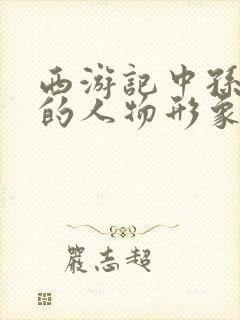 西游記中孫
的人物形象
嚴志超